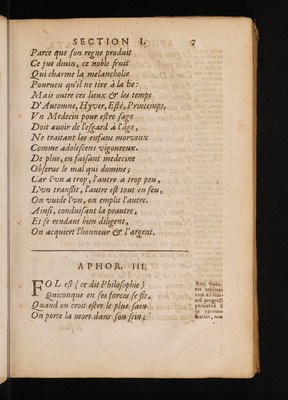 SECTION I. 7
Parce que son regne produit
Ce jus diuin, ce noble fruit
Qui charme la melancholie
Pourueu qu'il ne tire à la lie:
Mais outre ces lieux & les temps
D'Automne, Hyver, Esté, Printemps,
Vn Medecin pour estre sage
Doit auoir de l'esgard à l'âge,
Ne traitant les enfans morveux
Comme adolescens vigoureux.
De plus, en faisant medecine
Obserue le mal qui domine;
Car l'vn a trop, l'autre a trop peu,
L'vn transsit, l'autre est tout en feu,
On vuide l'vn, on emplit l'autre.
Ainsi, conduisant la peautre,
Et se rendant bien diligent,
On acquiert l'honneur & l'argent.
APHOR. III.
FOL est (ce dit Philosophie)
Quiconque en ses forces se fie,
Quand on croit estre le plus sain
On porte la mort dans son sein;